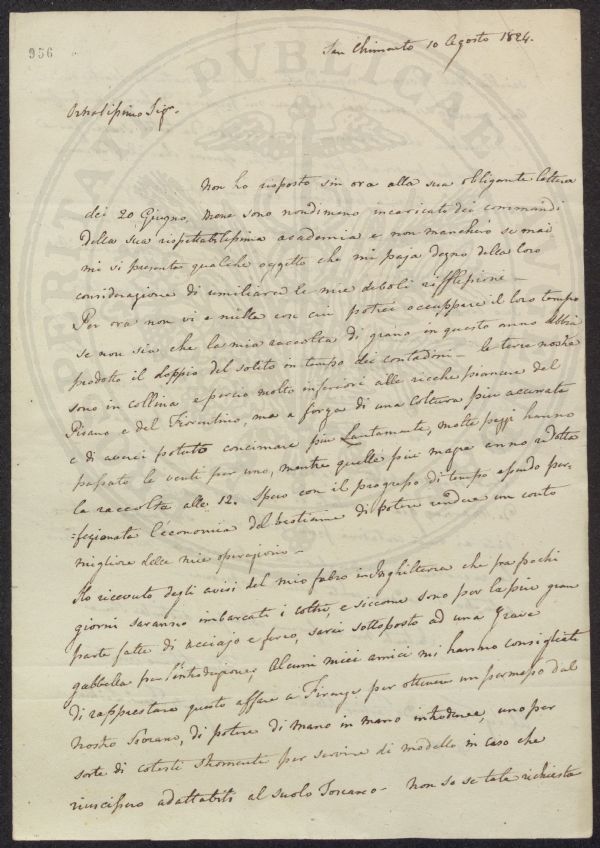 956
San Chimento 10 Agosto 1824.
Ornatissimo Sigr.
Non ho risposto sin ora alla sua obligante lettera
dei 20 Giugno, mene sono nondimeno incaricato dei commandi
della sua rispettabilissima academia e non mancherò se mai
mi si presenta qualche oggetto che mi paja degno della loro
considerazione di umiliare le mie deboli rifflessione –
Per ora non vi è nulla con cui potrei occuppare il loro tempo
se non sia che la mia raccolta di grano in questo anno abbia
prodotto il doppio del solito in tempo dei contadini – le terre nostre
sono in collina e perciò molto inferiori alle ricche pianure del
Pisano e del Fiorentino, ma a forza di una coltura più accurata
e di averci potuto concimare più lautamente, molti pezzi hanno
passato le venti per uno, mentre quelle più magre anno ridotta
la raccolta alle 12. Spero con il progresso di tempo essendo per-
-fezionata l'economia del bestiame di potere rendere un conto
migliore delle mie operazioni –
Ho ricevuto degli avisi del mio fabro in Inghilterra che fra pochi
giorni saranno imbarcati i coltri, e siccome sono per la più gran
parte fatte di acciajo e ferro, sarei sottoposto ad una grave
gabbella per l'introduzione, Alcuni miei amici mi hanno consigliato
di rappresentare questo affare a Firenze per ottenere un permesso dal
nostro Sovrano, di potere di mano in mano introdurre, uno per
sorte di coteste stromenti per servire di modello in caso che
riuscissero adattabili al suolo Toscano – non so se tale richiesta